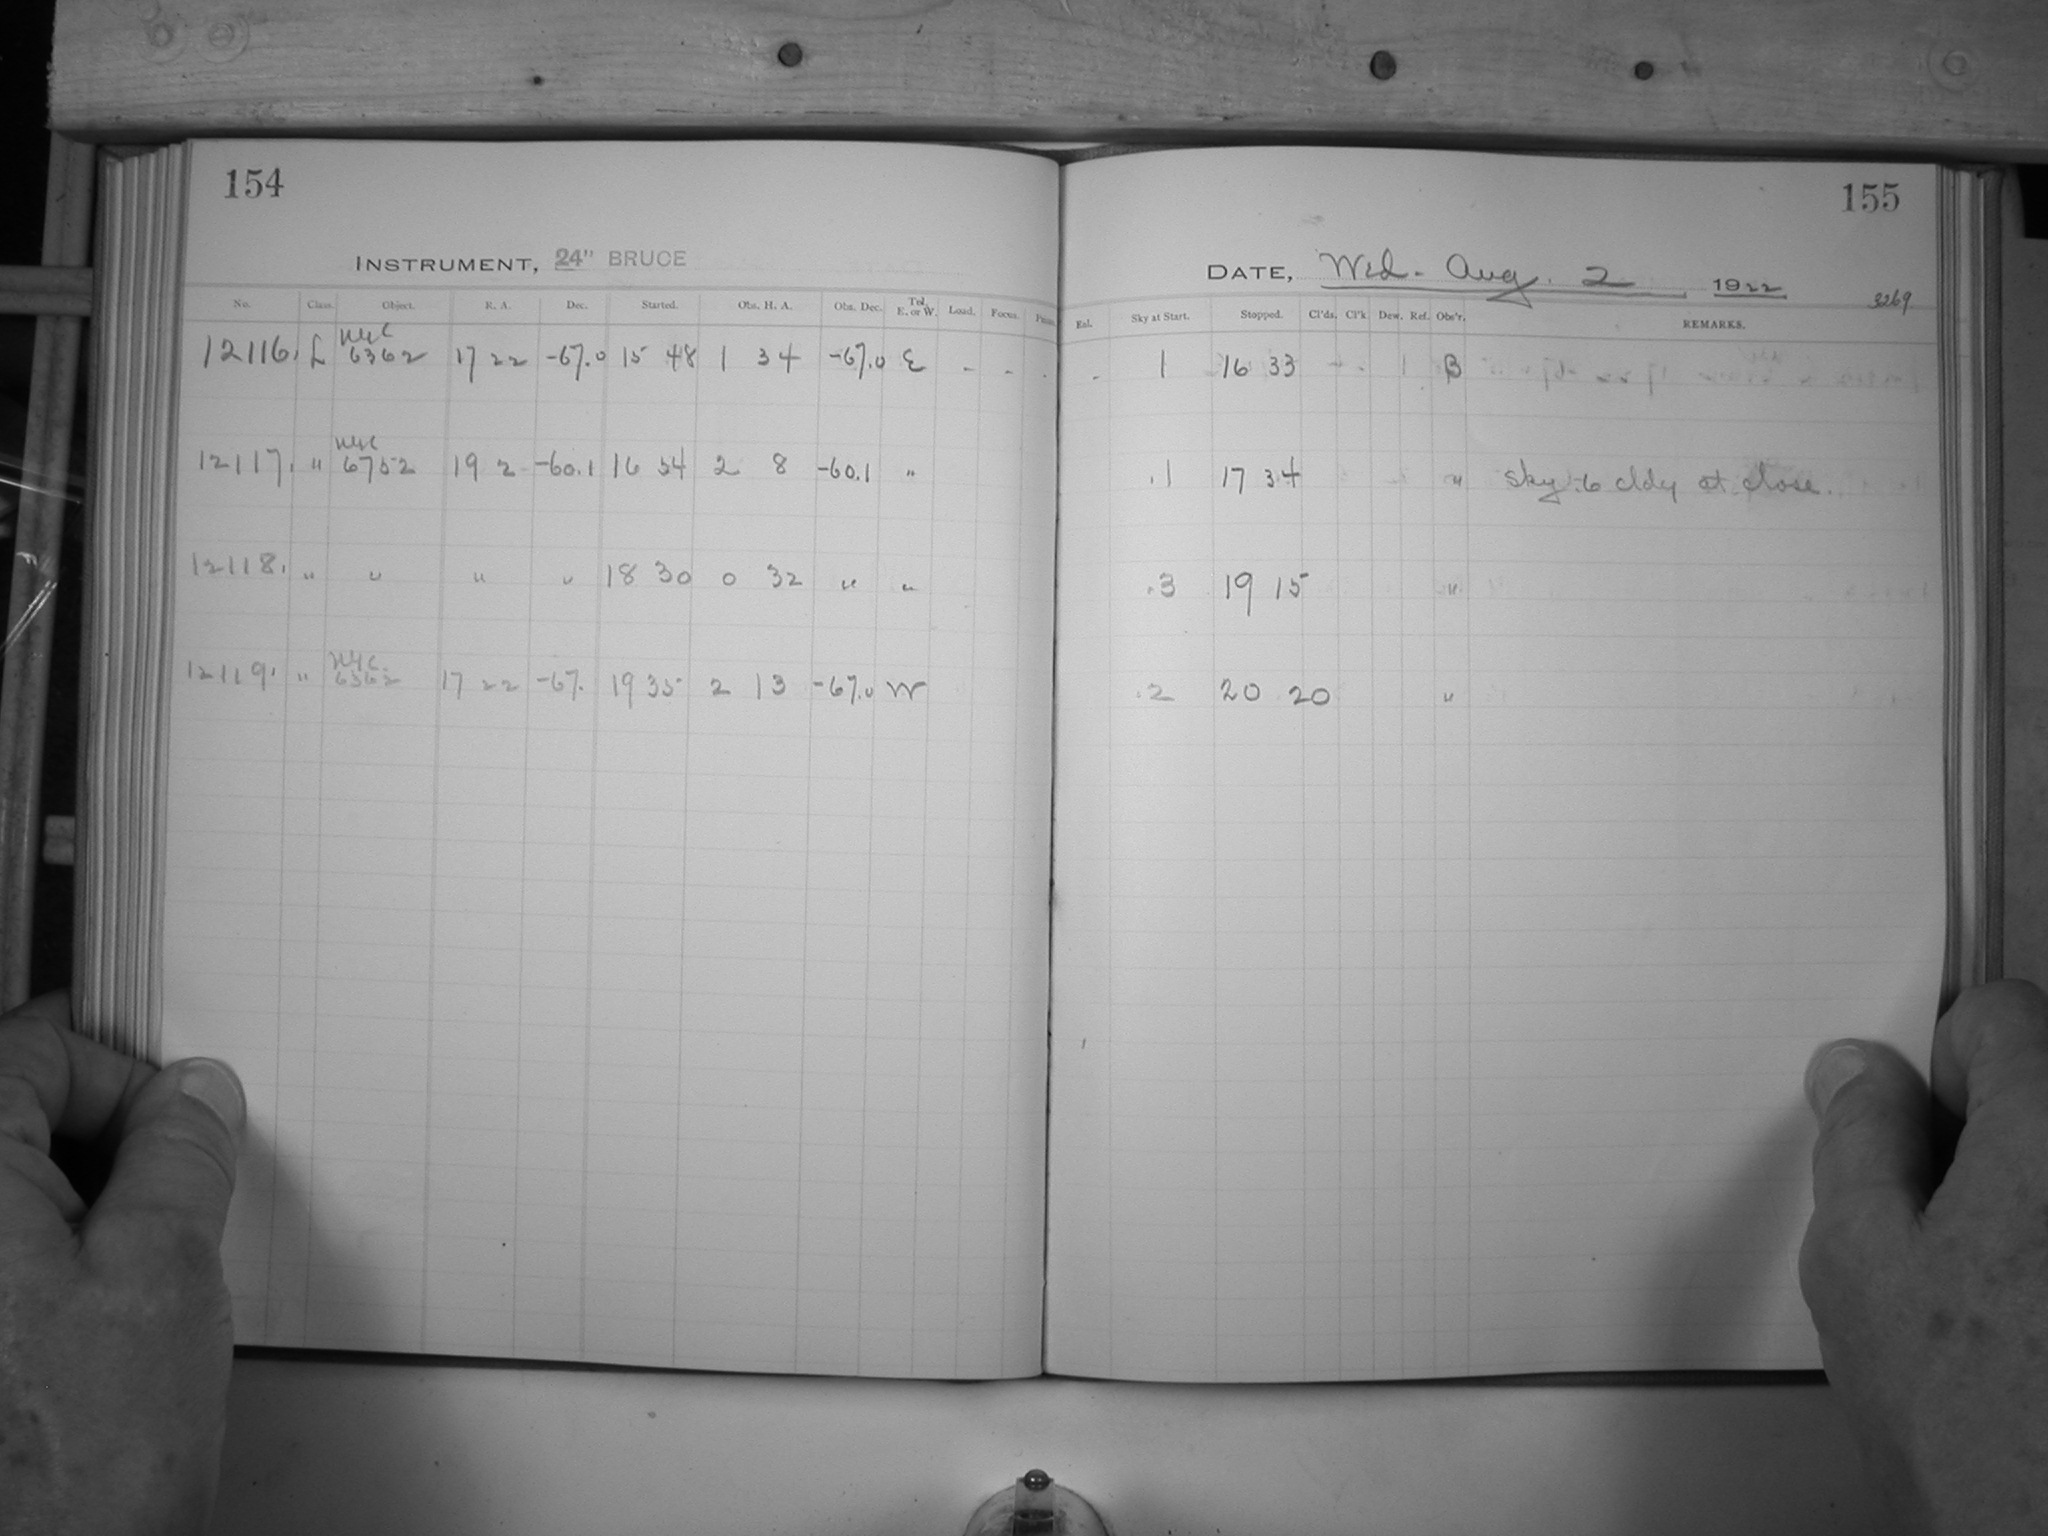 154
INSTRUMENT, 24" BRUCE
No. Class. Object. R. A. Dec. Started. Obs. H. A. Obs. Dec. Tel. E. or W. Load. Focus.
12116. L NGC 6362 17 22 -67.0 15 48 1 34 -67.0 E - - -
12117. " NGC 6752 19 2 -60.1 16 54 2 8 -60.1 "
12118. " " " " 18 30 0 32 " "
12119. " NGC. 6362 17 22 -67. 19 35 2 13 -67.0 W
155
DATE, Wed. Aug. 2 1922
3269
Eal. Sky at Start. Stopped. Cl'ds. Cl'k Dew. Ref. Obs'r. REMARKS.
- 1 16 33 B
.1 17 34 " Sky .6 cldy at close.
.3 19 15 "
.2 20 20 "